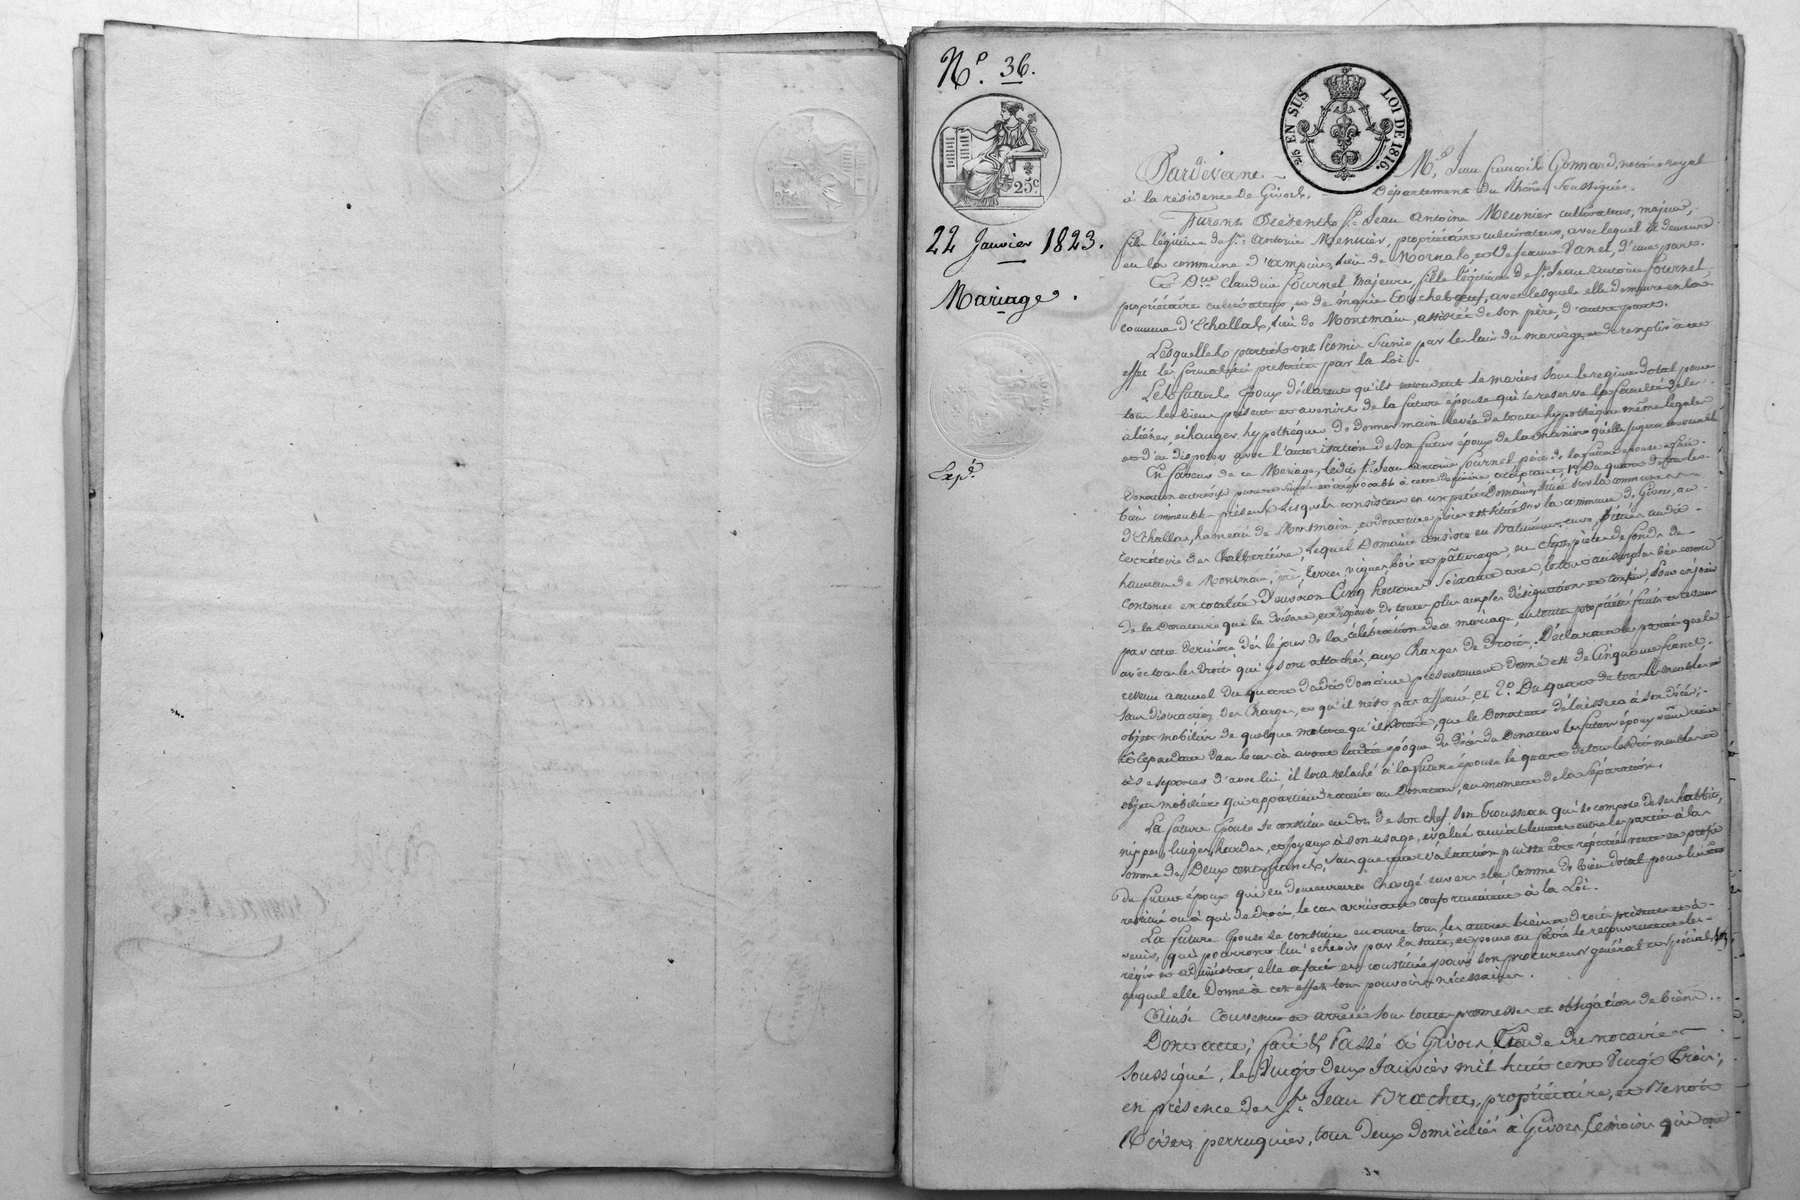 N.º 36.
25ᶜ
22 Janvier 1823.
Mariage.
Exp.é
2/5 EN SUS LOI DE 1816.
Pardevant Mᵉ. Jean françois Gonnard, notaire royal
à la résidence de Givors, Département du Rhône, soussigné.
Furent Présents Sr. Jean Antoine Meunier cultivateur, majeur,
fils légitime de Sr. Antoine Meunier, propriétaire cultivateur, avec lequel il demeure
en la commune d'ampuis, lieu de Mornas, et de Jeanne Vanel, d'une part.
Et Dlle Claudine Fournel Majeure, fille légitime de Sr. Jean Antoine Fournel,
propriétaire cultivateur, et de marie Couchebœuf, avec lesquels elle demeure en la
commune d'Echallas, lieu de Montmain, assistée de son père, d'autre part.
Lesquelles parties ont promis s'unir par les liens du mariage et de remplir à cet
effet les formalités prescrites par la Loi.
Les futurs Epoux déclarent qu'ils entendent se marier sous le regime dotal pour
tous les biens présents et avenirs de la future épouse qui se reserve la faculté de les
aliéner, échanger, hypothéquer, de donner main levée de toute hypothèque même légale
et d'en disposer avec l'autorisation de son futur époux de la manière qu'elle jugera convenable
En faveur de ce Mariage, ledit Sr. Jean Antoine Fournel père de la future épouse fait
Donation entrevifs pure et simple et irrévocable à cette dernière acceptant, 1º. Du quart de tous les
bien immeubles présents lesquels consistent en un petit Domaine, situé sur la commune
d'Echallas, hameau de Montmain, et dont une pièce est située sur la commune de Givors, au
territoire de lequel Domaine consiste en batiments, cour, situés audit
hameau de Montmain, pré, terres, vignes, bois et pâturage, en sept pièces de fonds de
contenue en totalité d'environ Cinq hectares soixante ares, le tout au surplus bien connu
de la Donataire qui la déclare, et dispense de toutes plus amples désignations et confins, pour en jouir
par cette dernière dès le jour de la célébration de ce mariage, en toute propriété fruits et revenus
avec tous les Droits qui y sont attachés, aux charges de Droit; Déclarant les parties que le
revenu annuel du quart dudit domaine présentement donné est de Cinquante francs,
sans distraction des Charges, et qu'il n'est pas affermé, et 2º. Du quart de tous les meubles et
objets mobiliers de quelque nature qu'ils soient, que le Donateur délaissera à son décès;
et cependant dans le cas où avant ladite époque du décès du Donateur les futurs époux
séparés d'avec lui il sera relaché à la future épouse le quart de tous les dits meubles et
objets mobiliers qui appartiendraient au Donateur, au moment de la séparation.
La future Epouse se constitue en dot de son chef son trousseau qui se compose de ses habits,
nippes, linges, hardes, et joyaux à son usage, évalué amiablement entre les parties à la
somme de Deux cents francs, sans que cette évaluation puisse être réputée vente au profit
du futur époux qui en demeurera chargé envers elle comme de bien dotal pour lui être
restitué ou à qui de droit, le cas arrivant conformément à la Loi.
La future Epouse se constitue en outre tous les autres biens et droits présents et à
venir, qui pourront lui échoir par la suite, et pour en faire le recouvrement les
régir et administrer elle a fait et constitué pour son procureur général et spécial,
auquel elle donne à cet effet tous pouvoirs nécessaires.
Ainsi Convenu et arrêté sous toutes promesses et obligation de biens.
Dont acte; fait & Passé à Givors Etude du notaire
soussigné, le Vingt Deux Janvier mil huit cent vingt trois;
en présence des Srs. Jean Brachet, propriétaire, et Benoit
perruquier, tous Deux domiciliés à Givors, témoins qui ont